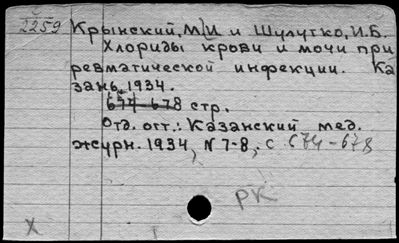 2259
Крынский, М.И и Шулутко, И.Б.
Хлориды крови и мочи при
ревматической инфекции. Ка
зань, 1934.
674-678 стр.
Отд. отт.: Казанский мед.
журн. 1934, N 7-8, с 674-678
РК
X